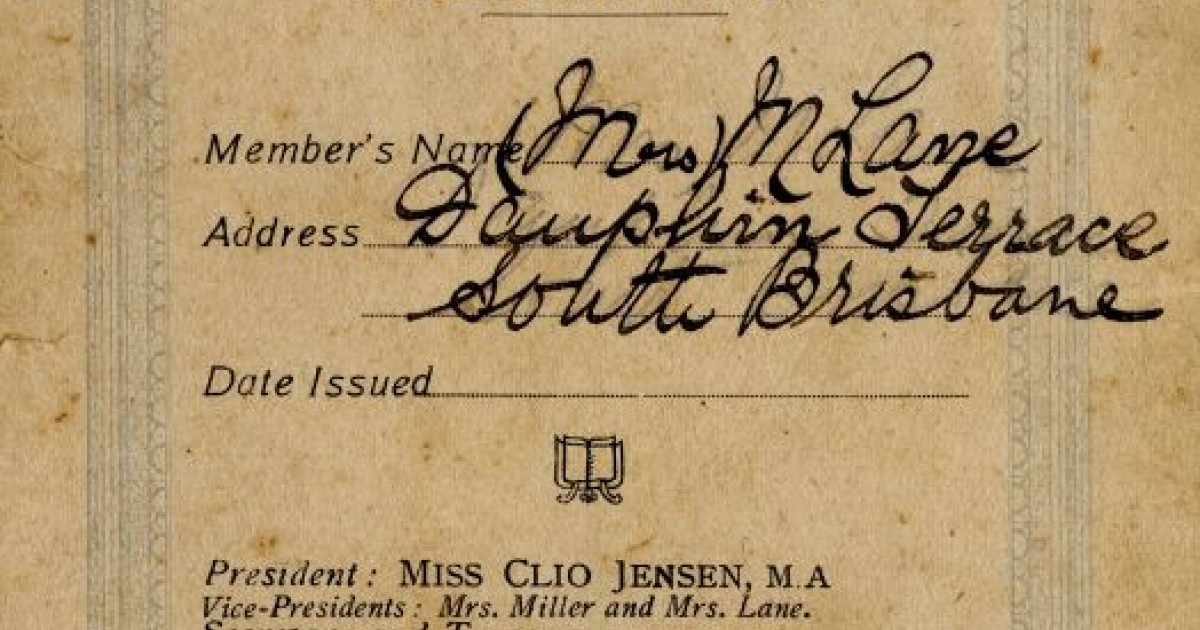 Member's Name (Mrs) M Lane
Address Dauphin Terrace
South Brisbane
Date Issued
President: MISS CLIO JENSEN, M.A
Vice-Presidents: Mrs. Miller and Mrs. Lane.